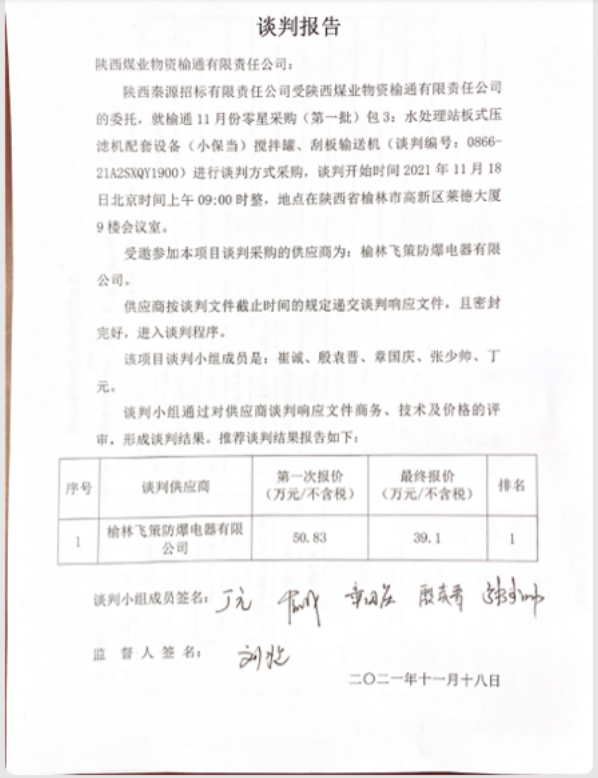 谈判报告
陕西煤业物资榆通有限责任公司：
陕西秦源招标有限责任公司受陕西煤业物资榆通有限责任公司
的委托，就榆通 11 月份零星采购（第一批）包 3：水处理站板式压
滤机配套设备（小保当）搅拌罐、刮板输送机（谈判编号：0866-
21A2SXQY1900）进行谈判方式采购，谈判开始时间 2021 年 11 月 18
日北京时间上午 09:00 时整，地点在陕西省榆林市高新区莱德大厦
9 楼会议室。
受邀参加本项目谈判采购的供应商为：榆林飞策防爆电器有限
公司。
供应商按谈判文件截止时间的规定递交谈判响应文件，且密封
完好，进入谈判程序。
该项目谈判小组成员是：崔诚、殷袁晋、章国庆、张少帅、丁
元。
谈判小组通过对供应商谈判响应文件商务、技术及价格的评
审，形成谈判结果。推荐谈判结果报告如下：
序号 谈判供应商 第一次报价（万元/不含税） 最终报价（万元/不含税） 排名
1 榆林飞策防爆电器有限公司 50.83 39.1 1
谈判小组成员签名：丁元 崔诚 章国庆 殷袁晋 张少帅
监督人签名：
二〇二一年十一月十八日